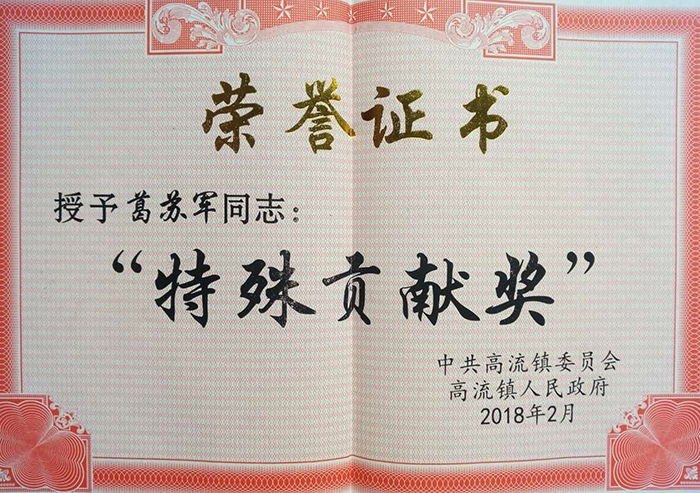 荣誉证书
授予葛苏军同志：
“特殊贡献奖”
中共高流镇委员会
高流镇人民政府
2018年2月